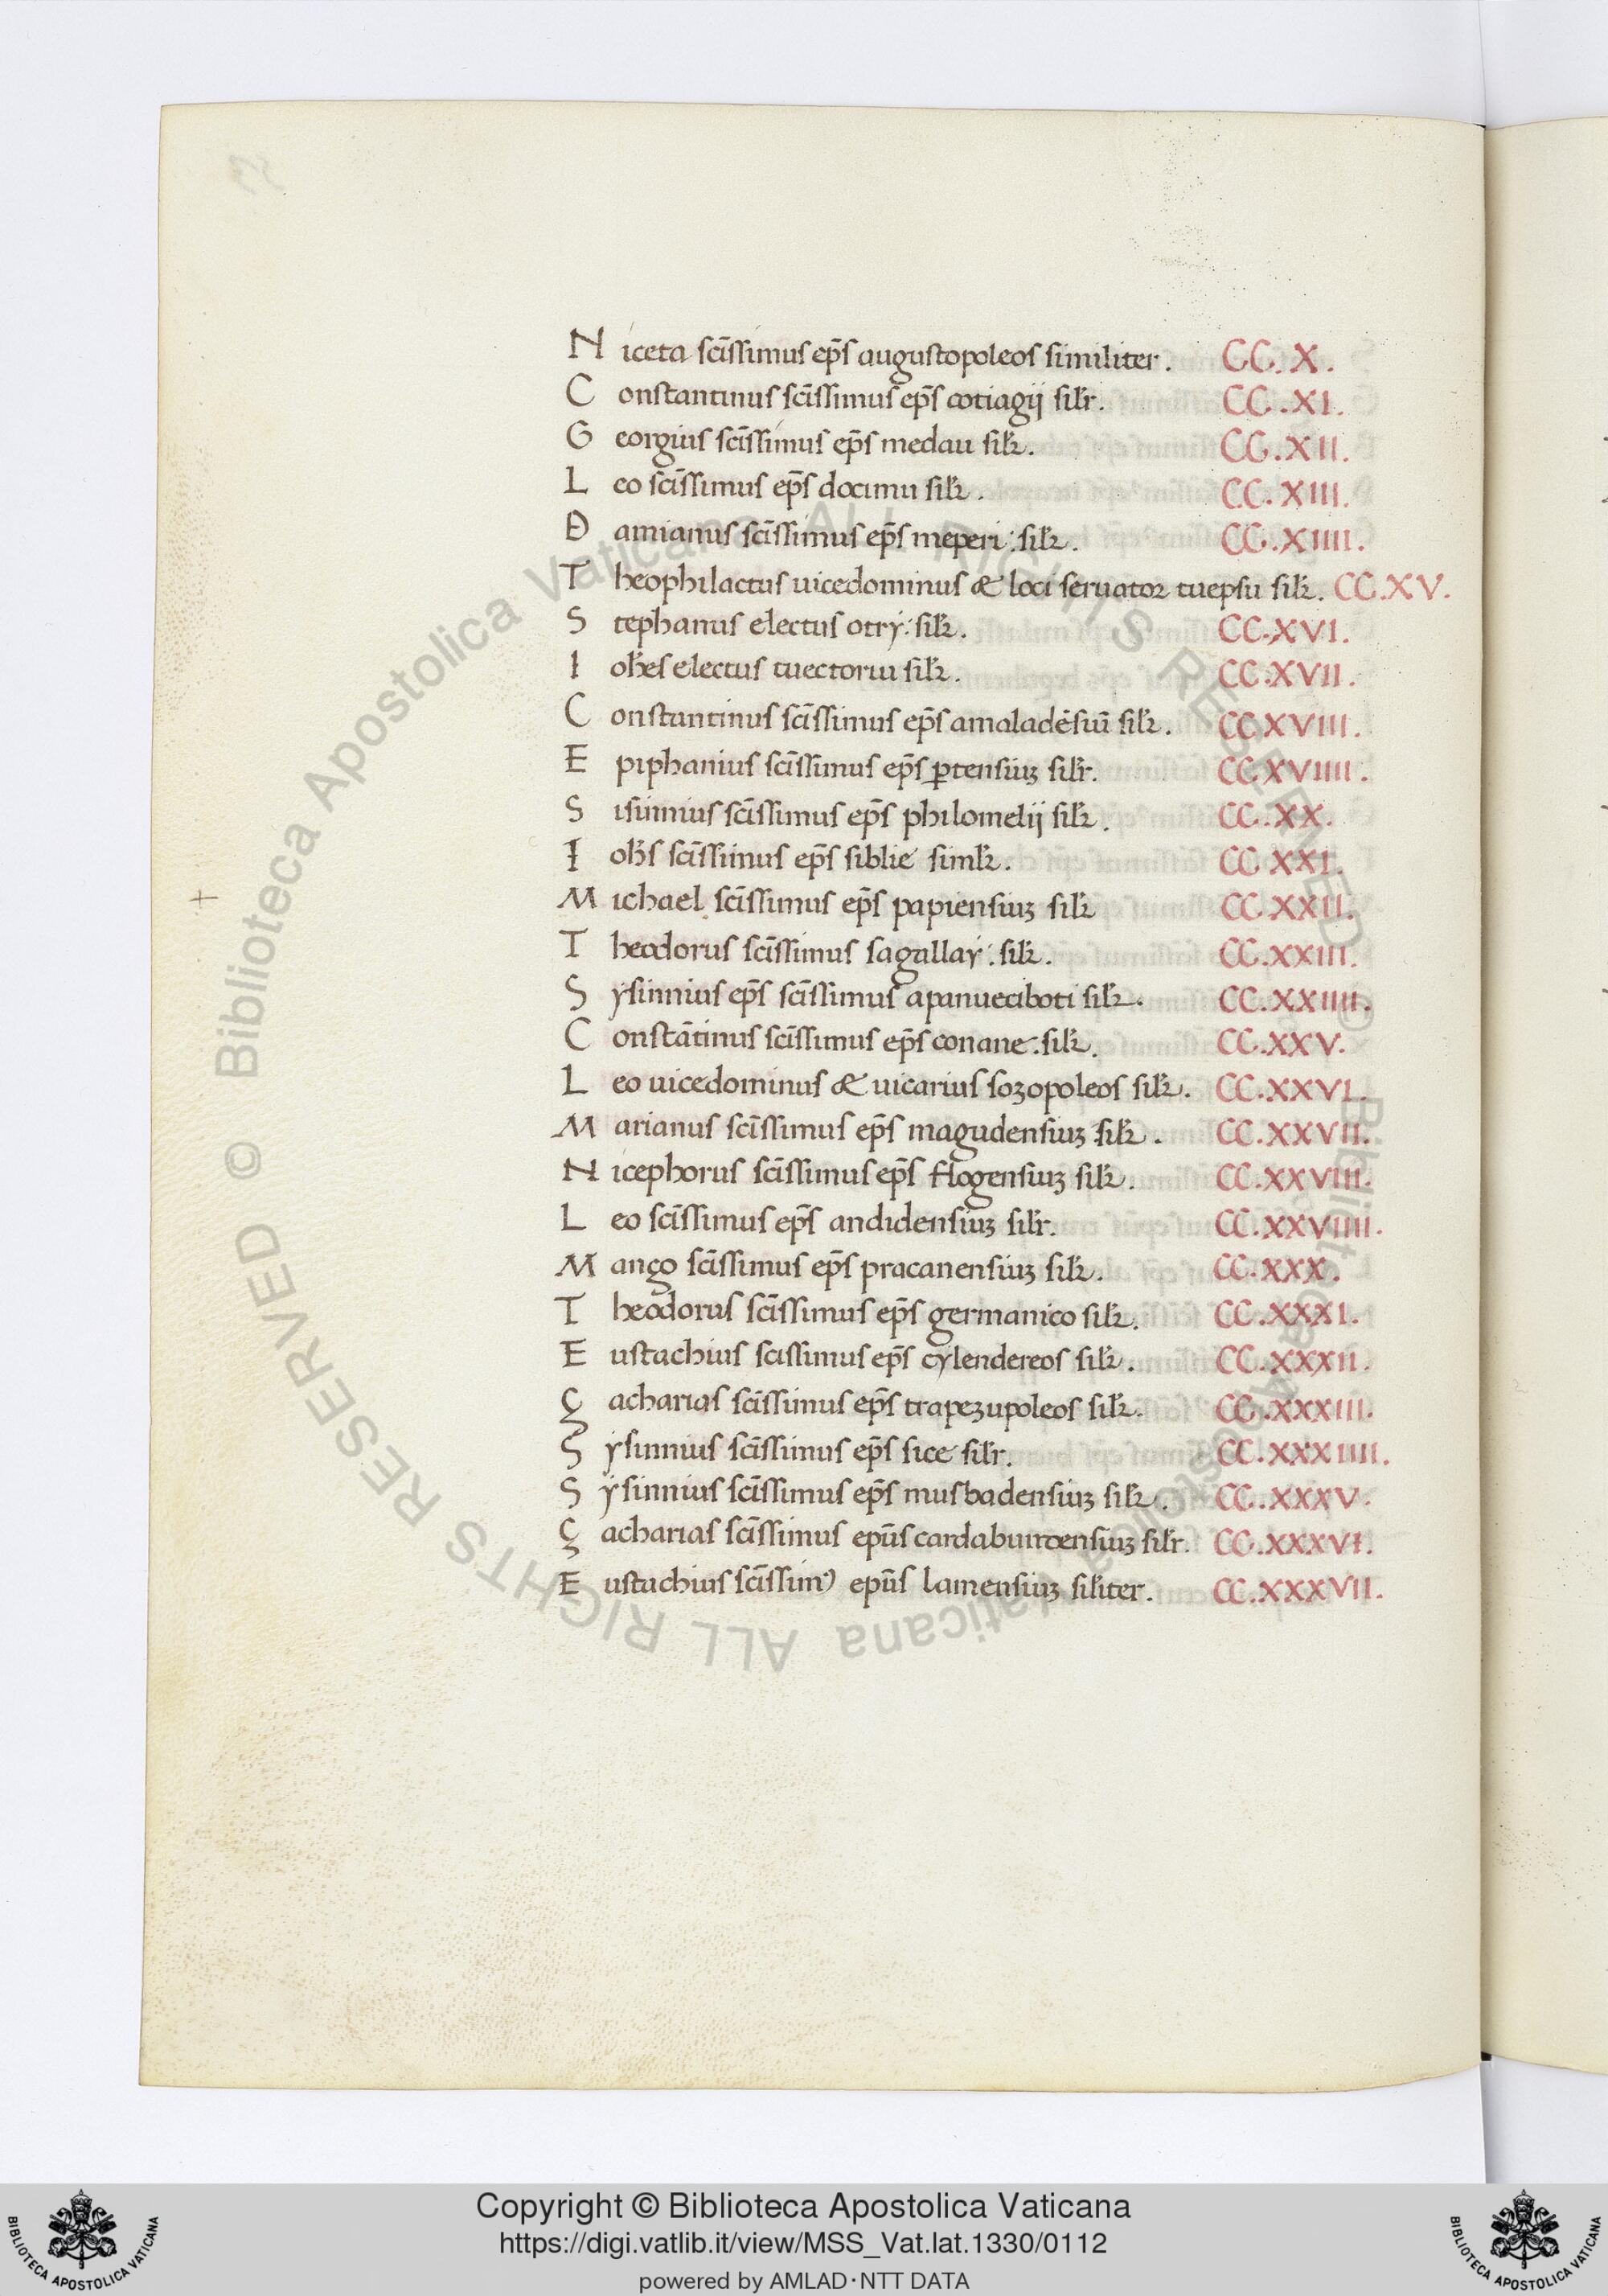 Niceta scīssimus ep̄s augustopoleos similiter. CC.X.
Constantinus scīssimus ep̄s cotiagij silr. CC.XI.
Georgius scīssimus ep̄s medau silr. CC.XII.
Leo scīssimus ep̄s docimu silr. CC.XIII.
Damianus scīssimus ep̄s meperi: silr. CC.XIIII.
Theophilactus uicedominus & loci seruator tuepsu silr. CC.XV.
Stephanus electus otry: silr. CC.XVI.
Iohes electus tuectoriu silr. CC.XVII.
Constantinus scīssimus ep̄s amaladēsiū silr. CCXVIII.
Epiphanius scīssimus ep̄s ꝑtensiuꝫ silr. CCXVIIII.
Sisinnius scīssimus ep̄s philomelij silr. CC.XX.
Iohs scīssimus ep̄s siblie simlr. CCXXI.
Michael scīssimus ep̄s papiensiuꝫ silr CC.XXII.
Theodorus scīssimus sagallay: silr. CC.XXIII.
Sysinnius ep̄s scīssimus apanueciboti silr. CC.XXIIII.
Constātinus scīssimus ep̄s conane: silr. CC.XXV.
Leo uicedominus & uicarius sozopoleos silr. CC.XXVI.
Marianus scīssimus ep̄s magudensiuꝫ silr. CC.XXVII.
Nicephorus scīssimus ep̄s flogensiuꝫ silr. CC.XXVIII.
Leo scīssimus ep̄s andidensiuꝫ silr. CC.XXVIIII.
Mango scīssimus ep̄s pracanensiuꝫ silr. CC.XXX.
Theodorus scīssimus ep̄s germanico silr. CC.XXXI.
Eustachius scissimus ep̄s cylendereos silr. CC.XXXII.
Çacharias scīssimus ep̄s trapezupoleos silr. CC.XXXIII.
Sysinnius scīssimus ep̄s sice silr. CC.XXXIIII.
Sysinnius scīssimus ep̄s musbadensiuꝫ silr. CC.XXXV.
Çacharias scīssimus epūs cardabuntensiuꝫ silr. CC.XXXVI.
Eustachius scīssimꝰ epūs lamensiuꝫ siliter. CC.XXXVII.
© Biblioteca Apostolica Vaticana ALL RIGHTS RESERVED © Biblioteca Apostolica Vaticana ALL RIGHTS RESERVED
BIBLIOTECA APOSTOLICA VATICANA
Copyright © Biblioteca Apostolica Vaticana
https://digi.vatlib.it/view/MSS_Vat.lat.1330/0112
powered by AMLAD·NTT DATA
BIBLIOTECA APOSTOLICA VATICANA